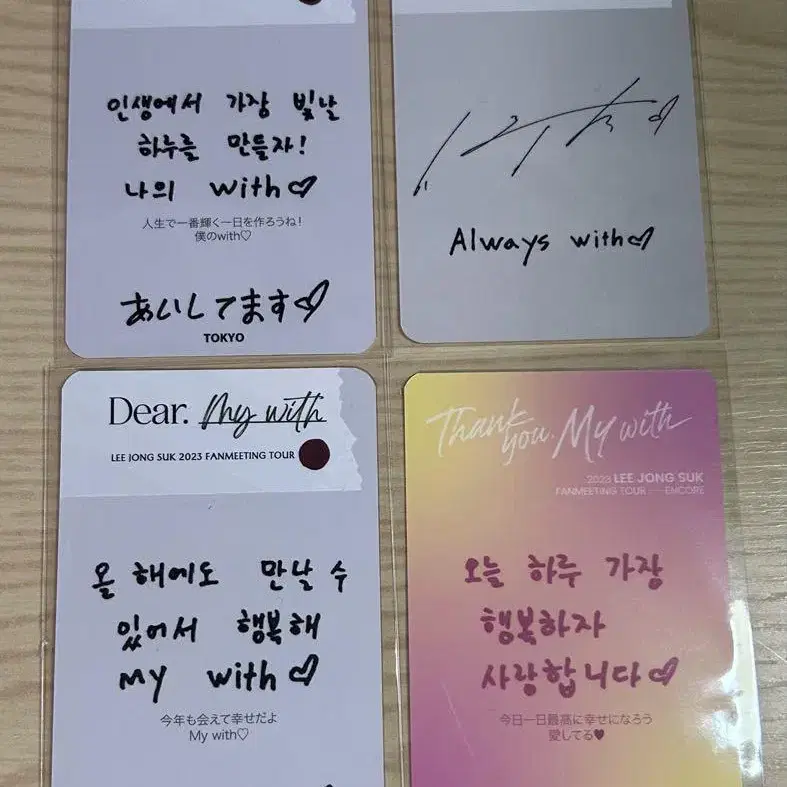 인생에서 가장 빛날
하루를 만들자!
나의 with♡
人生で一番輝く一日を作ろうね!
僕のwith♡
あいしてます♡
TOKYO
Always with♡
Dear. My with
LEE JONG SUK 2023 FANMEETING TOUR
올 해에도 만날 수
있어서 행복해
My with♡
今年も会えて幸せだよ
My with♡
Thank you. My with
2023 LEE JONG SUK
FANMEETING TOUR — ENCORE
오늘 하루 가장
행복하자
사랑합니다♡
今日一日最高に幸せになろう
愛してる♥